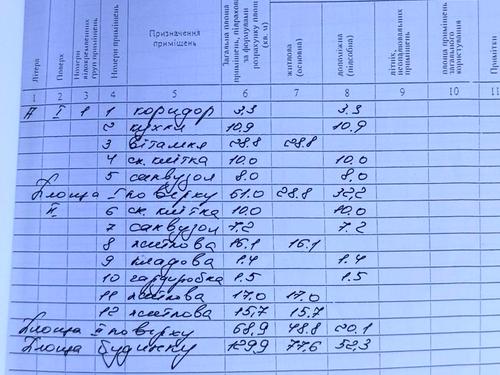 Літера Поверх Номери відокремлених груп приміщень Номери приміщень Призначення приміщень Загальна площа приміщень, підрахована за формулами розрахунку площі (кв. м) житлова (основна) допоміжна (підсобна) літніх, неопалювальних приміщень площа приміщень загального користування Примітки
1 2 3 4 5 6 7 8 9 10 11
А І 1 1 коридор 3.3 3.3
2 кухня 10.9 10.9
3 вітальня 28.8 28.8
4 сх. клітка 10.0 10.0
5 санвузол 8.0 8.0
Площа І поверху 61.0 28.8 32.2
ІІ 6 сх. клітка 10.0 10.0
7 санвузол 7.2 7.2
8 житлова 16.1 16.1
9 кладова 1.4 1.4
10 гардиробка 1.5 1.5
11 житлова 17.0 17.0
12 житлова 15.7 15.7
Площа ІІ поверху 68.9 48.8 20.1
Площа будинку 129.9 77.6 52.3